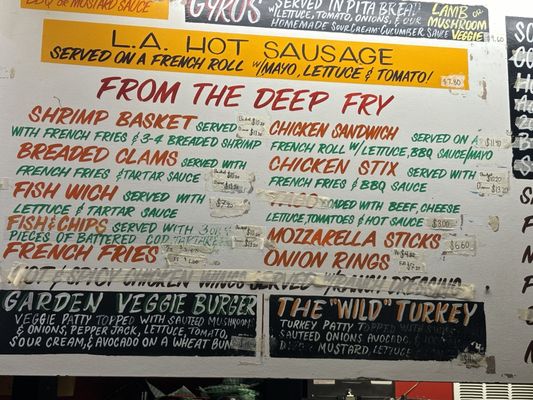 BBQ or MUSTARD SAUCE
GYROS SERVED IN PITA BREAD
LETTUCE, TOMATO, ONIONS, & OUR
HOMEMADE SOUR CREAM CUCUMBER SAUCE
LAMB or
MUSHROOM
VEGGIE
L.A. HOT SAUSAGE
SERVED ON A FRENCH ROLL W/MAYO, LETTUCE & TOMATO!
$7.80
FROM THE DEEP FRY
SHRIMP BASKET SERVED
WITH FRENCH FRIES & 3-4 BREADED SHRIMP
BREADED CLAMS SERVED WITH
FRENCH FRIES & TARTAR SAUCE
FISH WICH SERVED WITH
LETTUCE & TARTAR SAUCE
FISH & CHIPS SERVED WITH
PIECES OF BATTERED COD, TARTAR
FRENCH FRIES
CHICKEN SANDWICH SERVED ON A
FRENCH ROLL W/LETTUCE, BBQ SAUCE/MAYO
CHICKEN STIX SERVED WITH
FRENCH FRIES & BBQ SAUCE
TACO LOADED WITH BEEF, CHEESE
LETTUCE, TOMATOES & HOT SAUCE $3.00
MOZZARELLA STICKS $6.60
ONION RINGS
HOT/SPICY CHICKEN WINGS SERVED W/RANCH DRESSING
GARDEN VEGGIE BURGER
VEGGIE PATTY TOPPED WITH SAUTEED MUSHROOM
& ONIONS, PEPPER JACK, LETTUCE, TOMATO,
SOUR CREAM, & AVOCADO ON A WHEAT BUN
THE "WILD" TURKEY
TURKEY PATTY TOPPED WITH
SAUTEED ONIONS AVOCADO,
MUSTARD, LETTUCE